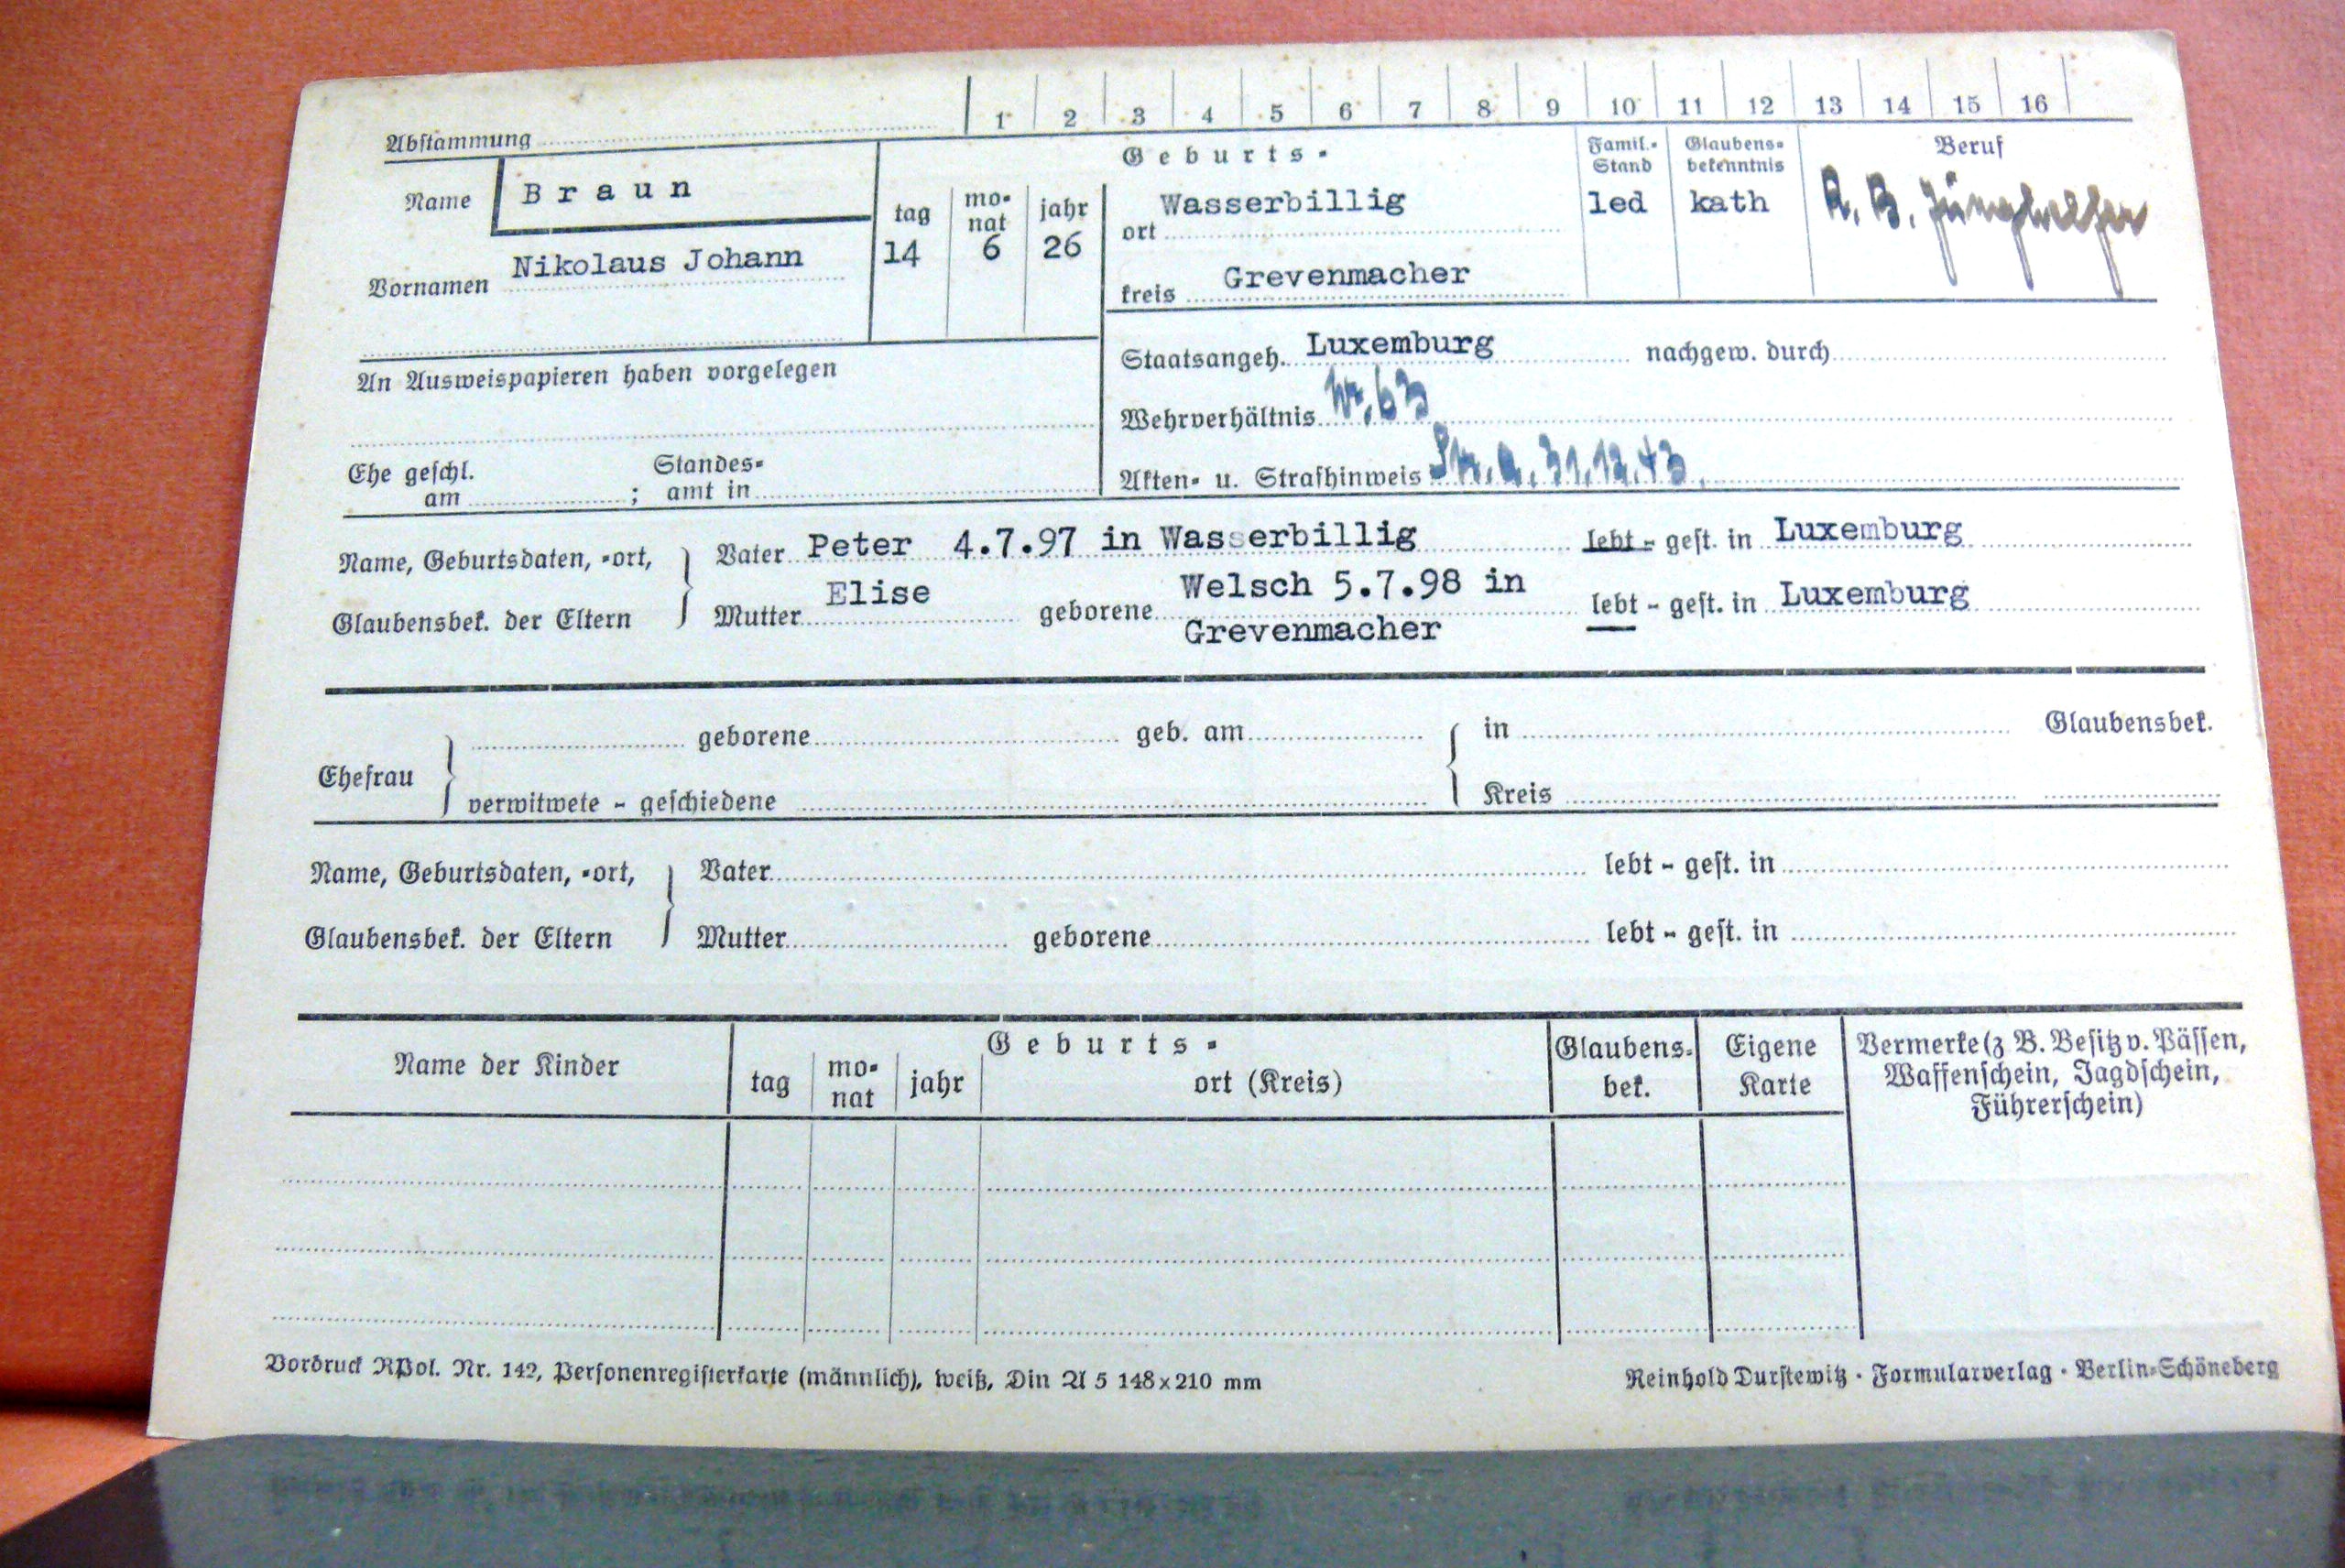 Abstammung 1 2 3 4 5 6 7 8 9 10 11 12 13 14 15 16
Name Braun
Vornamen Nikolaus Johann
Geburts-
tag monat jahr
14 6 26
ort Wasserbillig
kreis Grevenmacher
Famil.-Stand
led
Glaubens-bekenntnis
kath
Beruf
R. B. Junghelfer
An Ausweispapieren haben vorgelegen
Staatsangeh. Luxemburg nachgew. durch
Wehrverhältnis
Akten- u. Strafhinweis 31.12.43.
Ehe geschl. am ; Standes-amt in
Name, Geburtsdaten, -ort,
Glaubensbek. der Eltern
Vater Peter 4.7.97 in Wasserbillig lebt - gest. in Luxemburg
Mutter Elise geborene Welsch 5.7.98 in Grevenmacher lebt - gest. in Luxemburg
Ehefrau
geborene geb. am in Glaubensbek.
verwitwete - geschiedene Kreis
Name, Geburtsdaten, -ort,
Glaubensbek. der Eltern
Vater lebt - gest. in
Mutter geborene lebt - gest. in
Name der Kinder
Geburts-
tag monat jahr ort (Kreis)
Glaubens-bek.
Eigene Karte
Vermerke (z B. Besitz v. Pässen,
Waffenschein, Jagdschein,
Führerschein)
Vordruck RPol. Nr. 142, Personenregisterkarte (männlich), weiß, Din A 5 148x210 mm
Reinhold Durstewitz · Formularverlag · Berlin-Schöneberg